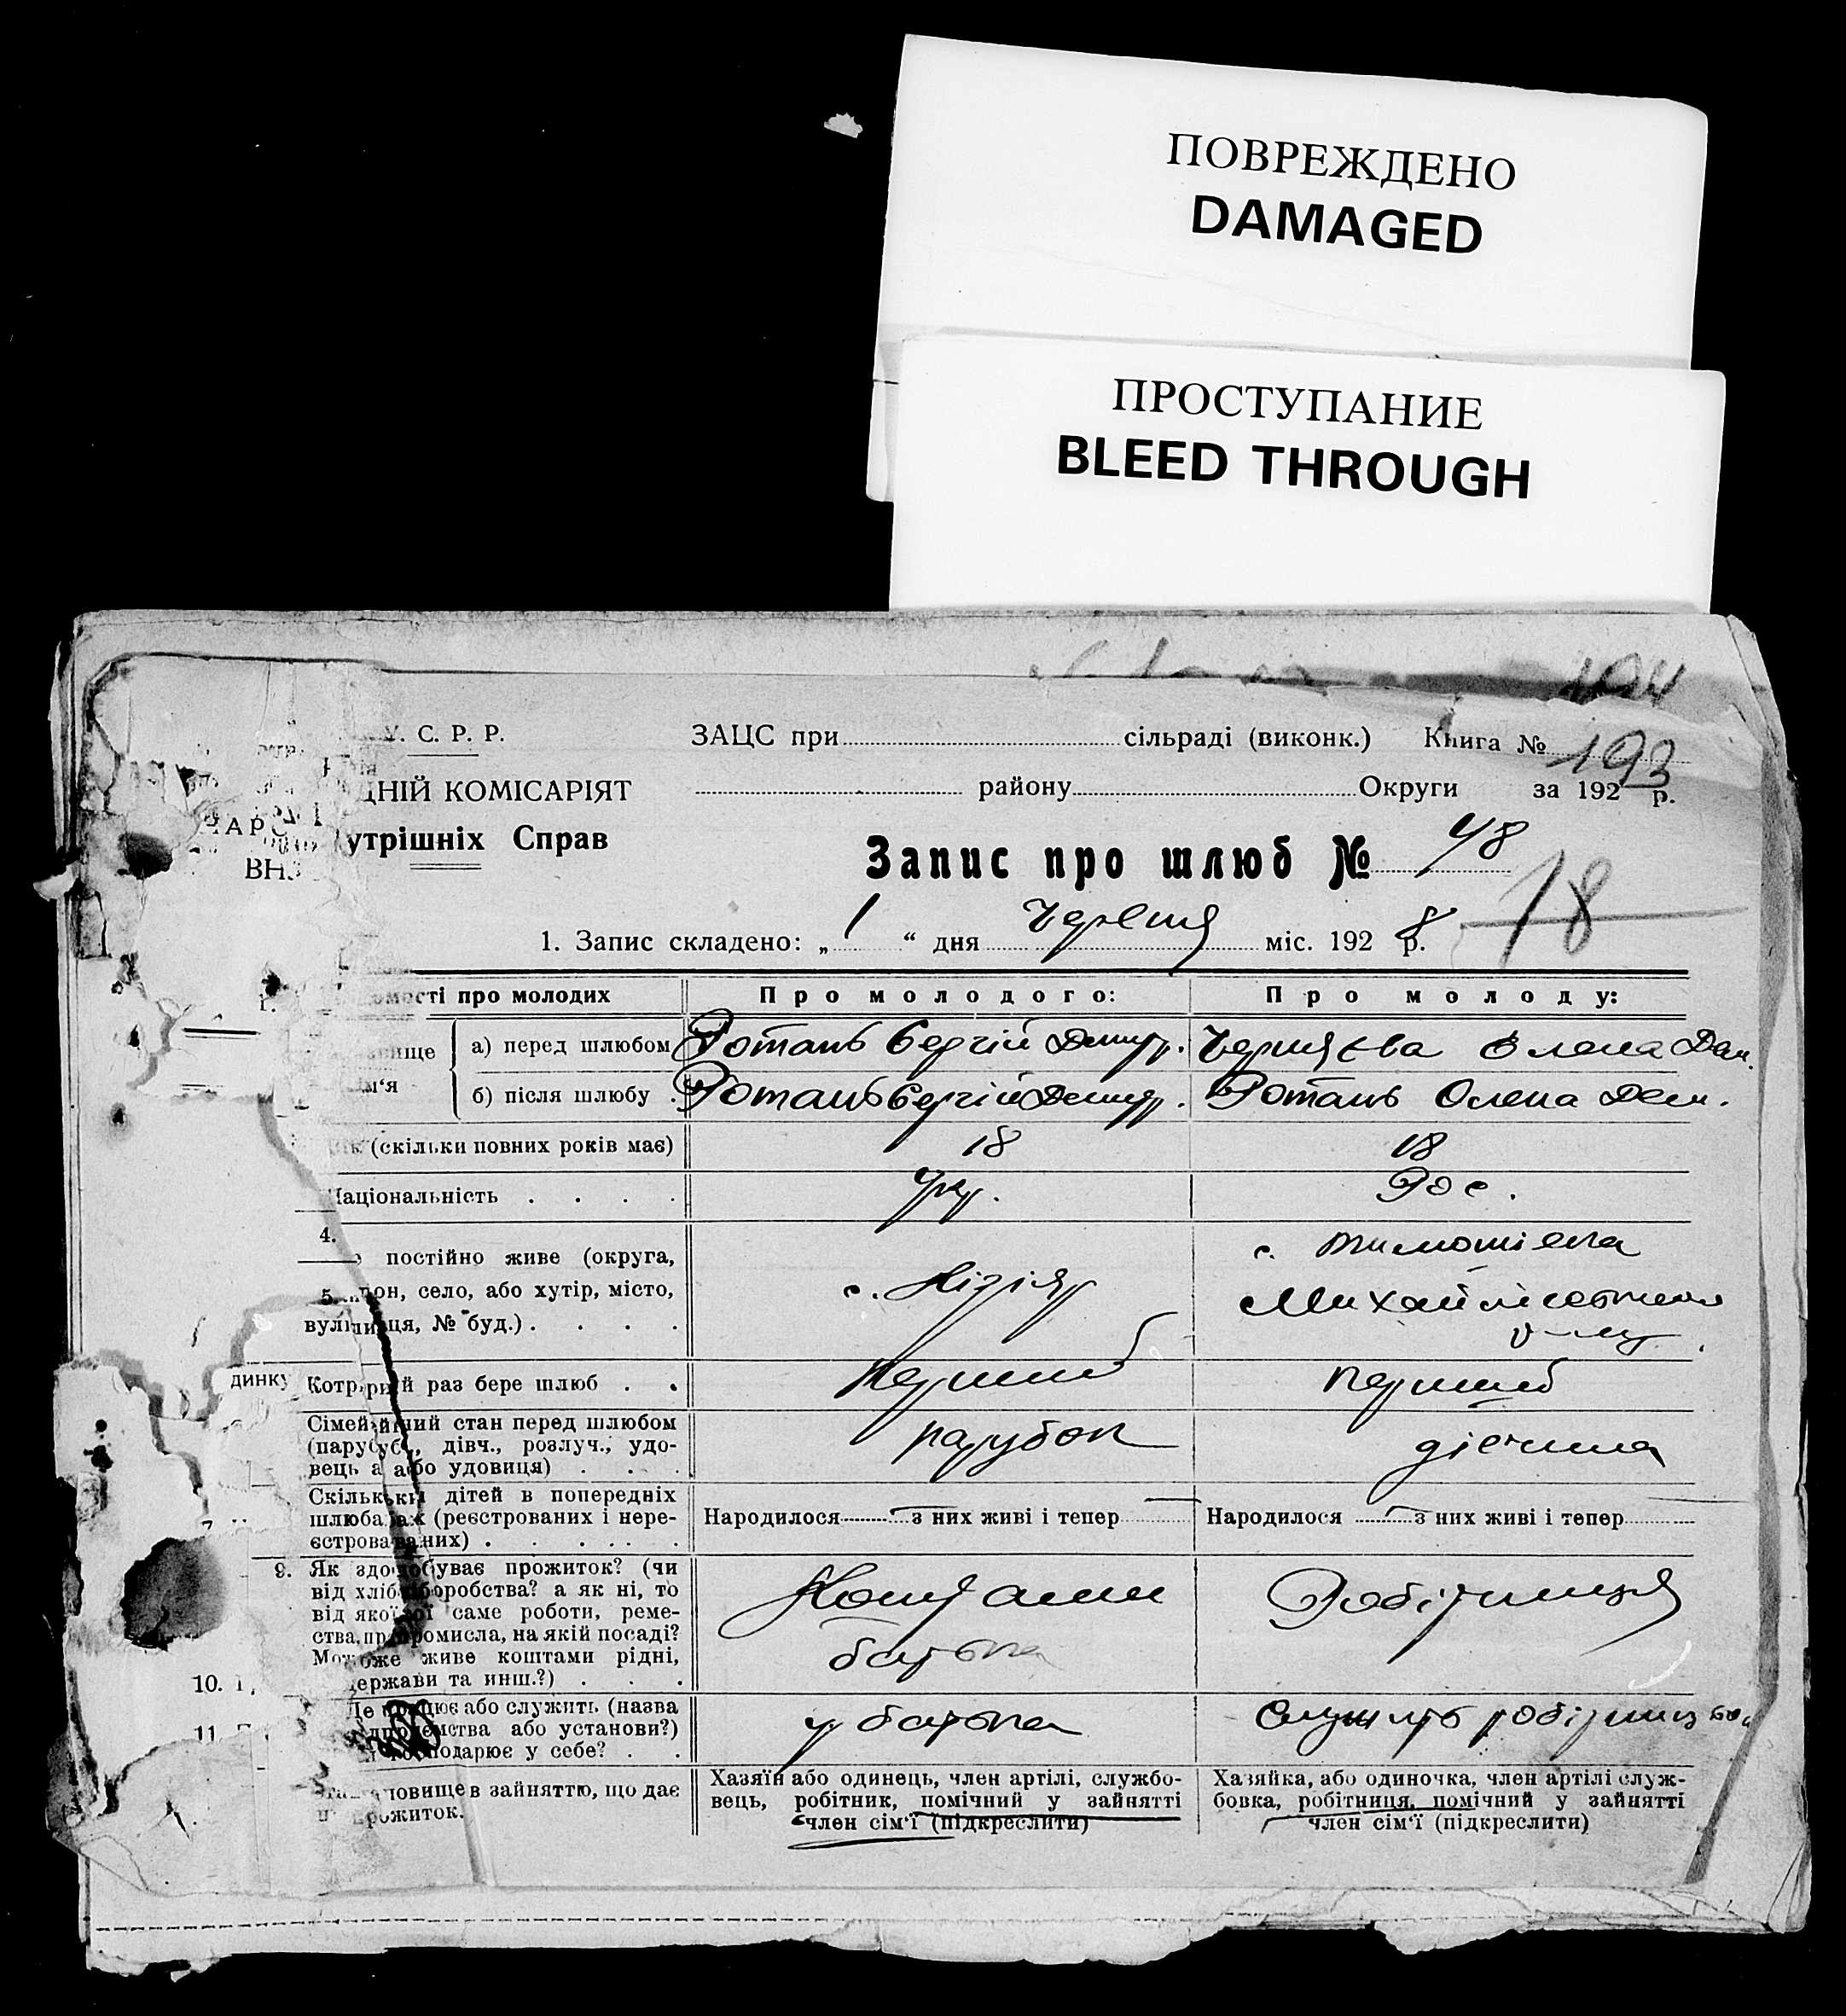 ПОВРЕЖДЕНО
DAMAGED
ПРОСТУПАНИЕ
BLEED THROUGH
194
У. С. Р. Р.
ЗАЦС при сільраді (виконк.) Книга № 193
ДНІЙ КОМІСАРІЯТ
району Округи за 192 р.
утрішніх Справ
Запис про шлюб № 48
18
1. Запис складено: „ 1 “ дня Червня міс. 192 8 р.
ості про молодих
Про молодого:
Про молоду:
ище
м‘я
а) перед шлюбом
Ротань Сергій
Олена Дем.
б) після шлюбу
Ротань Сергій
Ротань Олена Дем.
(скільки повних років має)
18
18
Національність
Укр.
Рос.
4.
постійно живе (округа,
он, село, або хутір, місто,
вулиця, № буд.)
с.
с. Тимошівка
Котрий раз бере шлюб
Перший
Перший
Сімейний стан перед шлюбом
(паруб., дівч., розлуч., удо-
вець або удовиця)
парубок
дівчина
Скільки дітей в попередніх
шлюбах (реєстрованих і нере-
єстрованих)
Народилося з них живі і тепер
Народилося з них живі і тепер
9. Як здобуває прожиток? (чи
від хліборобства? а як ні, то
від якої саме роботи, реме-
ства, промисла, на якій посаді?
Може живе коштами рідні,
держави та инш.?)
Коштами
батька
Робітниця
10.
11.
Де працює або служить (назва
або установи?)
господарює у себе?
у батька
Служить
овище в зайняттю, що дає
прожиток.
Хазяїн або одинець, член артілі, службо-
вець, робітник, помічний у зайнятті
член сім‘ї (підкреслити)
Хазяйка, або одиночка, член артілі служ-
бовка, робітниця, помічний у зайнятті
член сім‘ї (підкреслити)